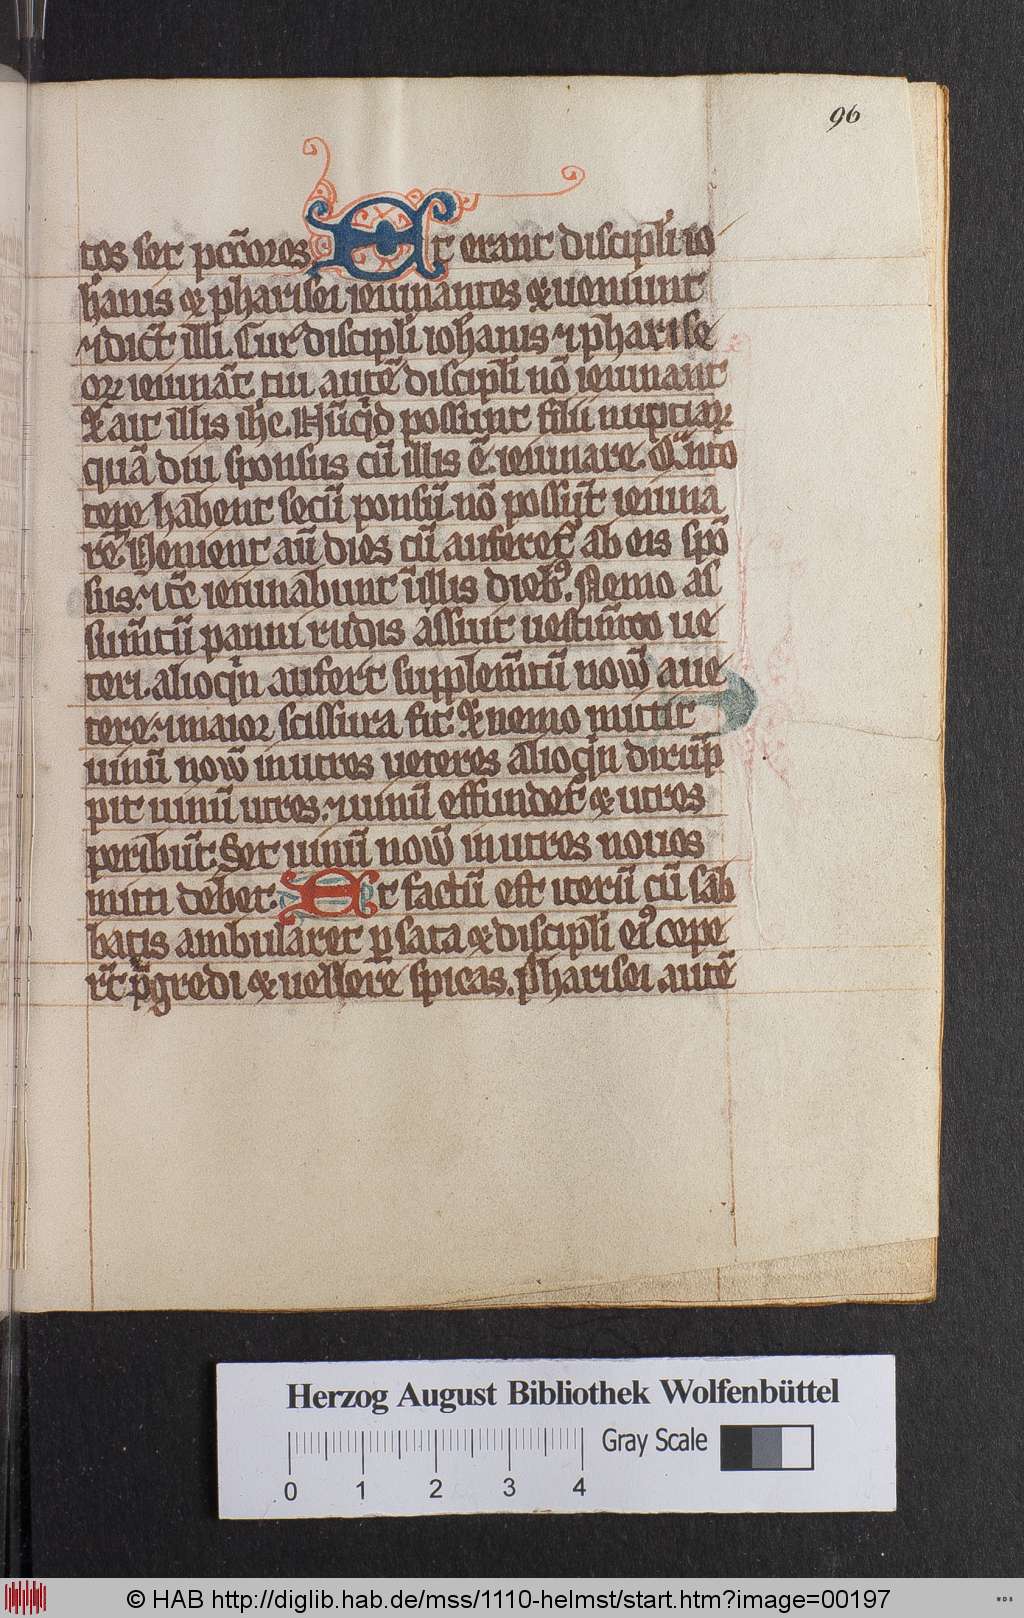 96
tos set pccores Et erant discipli io
hanis et pharisei ieiunantes et ueniunt
⁊ dict illi. Cur discipli iohanis ⁊ pharise
oꝝ ieiunāt, tui autē discipli nō ieiunant
Et ait illis ihc. Nūqd possunt filii nuptiaꝝ
quā diu sponsus cū illis ē ieiunare. Qnto
tēpe habent secū ponsū nō possūt ieiuna
rē Venient aū dies cū auferet ab eis spō
sus. ⁊ tc̄ ieiunabunt ī illis dieb9. Nemo as
sumtū panni rudis assuit uestimto ue
teri. alioqin aufert supplemtū nouū aue
tere. ⁊ maior scissura fit. Et nemo mittit
uinū nouū in utres ueteres alioqin dirūp
pit uinū utres. ⁊ uinū effundet et utres
peribūt. Set uinū nouū in utres nouos
mitti debet. Et factū est iterū cū sab
batis ambularet p sata et discipli ei9 cepe
rt pgredi et uellere spicas. Pharisei autē
Herzog August Bibliothek Wolfenbüttel
Gray Scale
0 1 2 3 4
© HAB http://diglib.hab.de/mss/1110-helmst/start.htm?image=00197